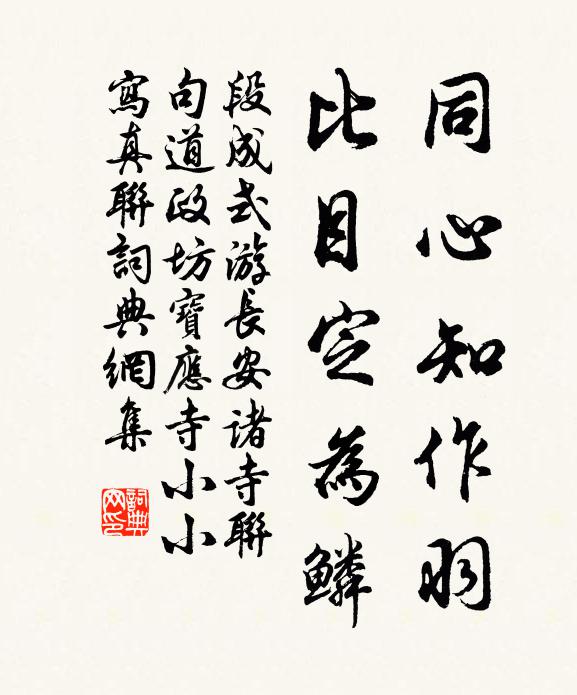 同心知作羽
比目定為鱗
段成式游長安諸寺聯
句道政坊寶應寺小小
寫真聯詞典網集
詞典网印